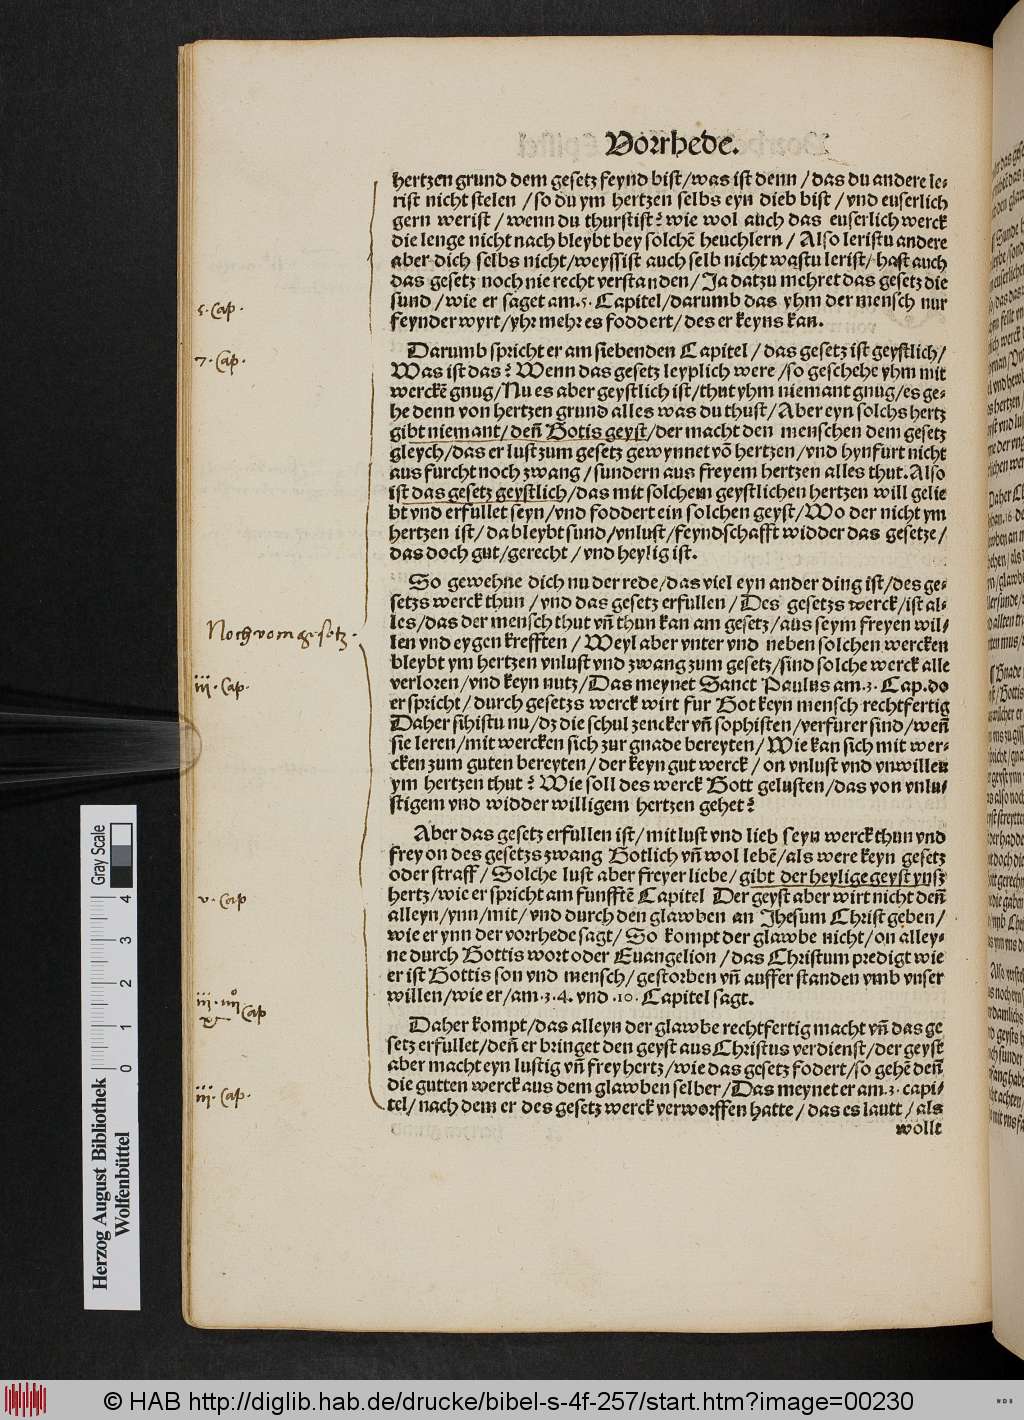 Vorrhede.
hertzen grund dem gesetz feynd bist/was ist denn/das du andere le⸗
rist nicht stelen/so du ym hertzen selbs eyn dieb bist/vnd euserlich
gern werist/wenn du thurstist? wie wol auch das euserlich werck
die lenge nicht nach bleybt bey solchē heuchlern/Also leristu andere
aber dich selbs nicht/weyssist auch selb nicht was tu lerist/hast auch
das gesetz noch nie recht verstanden/Ja datzu mehret das gesetz die
sund/wie er saget am.5.Capitel/darumb das yhm der mensch nur
feynder wyrt/yhr mehr es foddert/des er keyns kan.
Darumb spricht er am siebenden Capitel/das gesetz ist geystlich/
Was ist das? Wenn das gesetz leyplich were/so geschehe yhm mit
werckē gnug/Nu es aber geystlich ist/thut yhm niemant gnug/es ge⸗
he denn von hertzen grund alles was du thust/Aber eyn solchs hertz
gibt niemant/deñ Gotis geyst/der macht den menschen dem gesetz
gleych/das er lust zum gesetz gewynnet vō hertzen/vnd hynfurt nicht
aus furcht noch zwang/sundern aus freyem hertzen alles thut.Also
ist das gesetz geystlich/das mit solchem geystlichen hertzen will gelie
bt vnd erfullet seyn/vnd foddert ein solchen geyst/Wo der nicht ym
hertzen ist/da bleybt sund/vnlust/feyndschafft widder das gesetze/
das doch gut/gerecht/vnd heylig ist.
So gewehne dich nu der rede/das viel eyn ander ding ist/des ge⸗
setzs werck thun/vnd das gesetz erfullen/Des gesetzs werck/ist al⸗
les/das der mensch thut vñ thun kan am gesetz/aus seym freyen wil⸗
len vnd eygen krefften/Weyl aber vnter vnd neben solchen wercken
bleybt ym hertzen vnlust vnd zwang zum gesetz/sind solche werck alle
verloren/vnd keyn nutz/Das meynet Sanct Paulus am.3.Cap.do
er spricht/durch gesetzs werck wirt fur Got keyn mensch rechtfertig
Daher sihistu nu/dz die schul zencker vñ sophisten/verfurer sind/weñ
sie leren/mit wercken sich zur gnade bereyten/Wie kan sich mit wer⸗
cken zum guten bereyten/der keyn gut werck/on vnlust vnd vnwillen
ym hertzen thut? Wie soll des werck Gott gelusten/das von vnlu⸗
stigem vnd widder willigem hertzen gehet?
Aber das gesetz erfullen ist/mit lust vnd lieb seyn werck thun vnd
frey on des gesetzs zwang Gotlich vñ wol lebē/als were keyn gesetz
oder straff/Solche lust aber freyer liebe/gibt der heylige geyst ynsz
hertz/wie er spricht am funfftē Capitel Der geyst aber wirt nicht deñ
alleyn/ynn/mit/vnd durch den glawben an Jhesum Christ geben/
wie er ynn der vorrhede sagt/So kompt der glawbe nicht/on alley⸗
ne durch Gottis wort oder Euangelion/das Christum predigt wie
er ist Gottis son vnd mensch/gestorben vñ aufferstanden vmb vnser
willen/wie er/am.3.4. vnd .10.Capitel sagt.
Daher kompt/das alleyn der glawbe rechtfertig macht vñ das ge
setz erfullet/deñ er bringet den geyst aus Christus verdienst/der geyst
aber macht eyn lustig vñ frey hertz/wie das gesetz fodert/so gehē deñ
die gutten werck aus dem glawben selber/Das meynet er am.3.capi⸗
tel/nach dem er des gesetz werck verworffen hatte/das es lautt/als
wolle
5. Cap.
7. Cap.
Noch vom gesetz.
iii. Cap.
v. Cap
iii. iiii
x Cap
iii. Cap.
Herzog August Bibliothek
Wolfenbüttel
0 1 2 3 4
Gray Scale
© HAB http://diglib.hab.de/drucke/bibel-s-4f-257/start.htm?image=00230